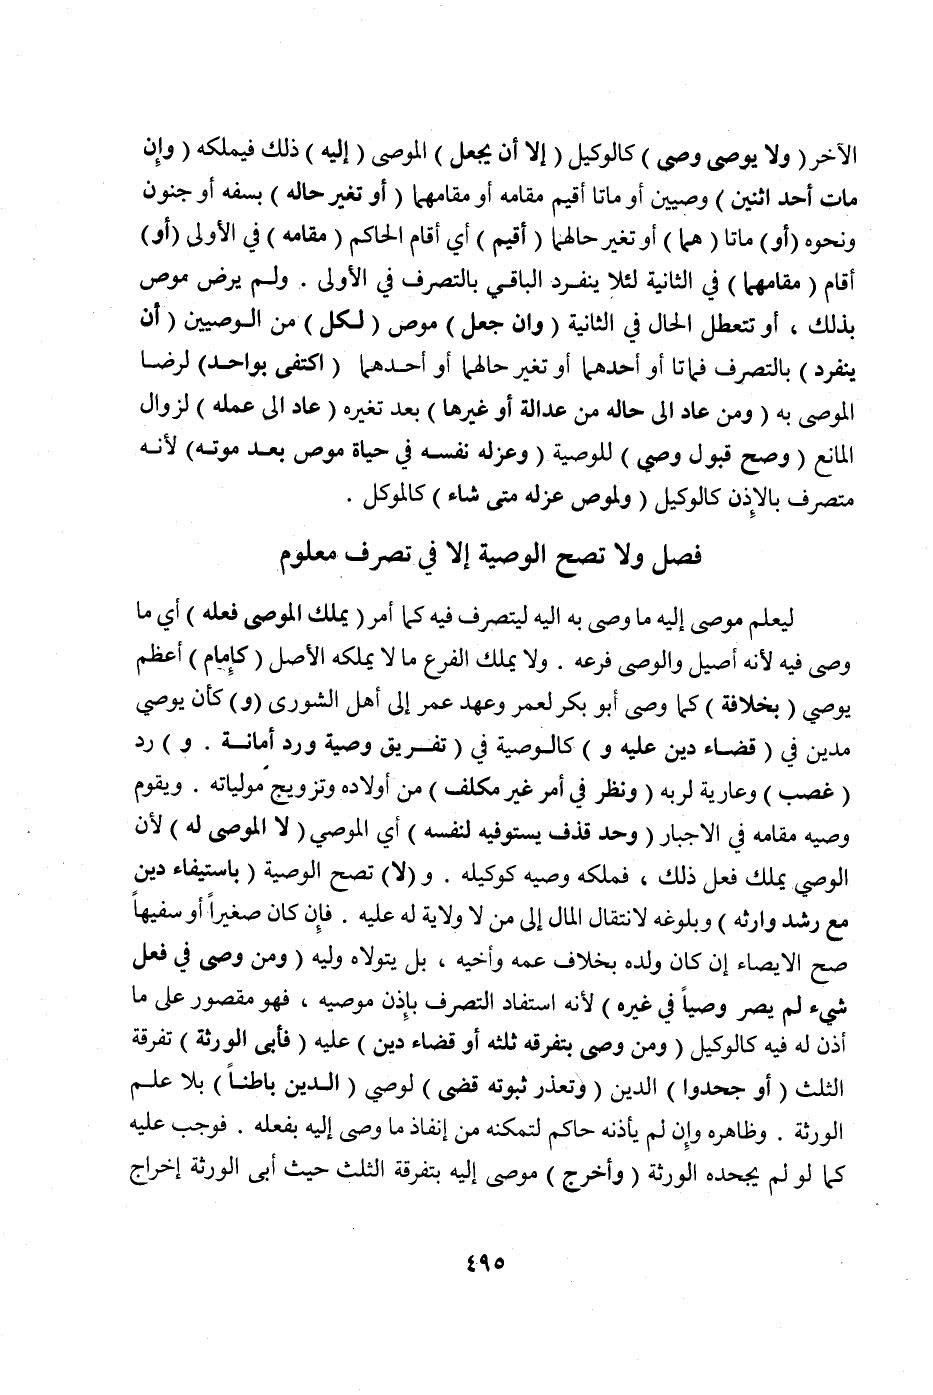 الآخر ( ولا يوصى وصى ) كالوكيل ( إلا أن يجعل ) الموصى ( إليه ) ذلك فيملكه ( وإن
مات أحد اثنين ) وصيين أو ماتا أقيم مقامه أو مقامهما ( أو تغير حاله ) بسفه أو جنون
ونحوه (أو) ماتا ( هما ) أو تغير حالهما ( أقيم ) أي أقام الحاكم ( مقامه ) في الأولى (أو)
أقام ( مقامهما ) في الثانية لئلا ينفرد الباقي بالتصرف في الأولى . ولم يرض موص
بذلك ، أو تتعطل الحال في الثانية ( وان جعل ) موص ( لكل ) من الوصيين ( أن
ينفرد ) بالتصرف فماتا أو أحدهما أو تغير حالهما أو أحدهما ( اكتفى بواحد) لرضا
الموصى به ( ومن عاد الى حاله من عدالة أو غيرها ) بعد تغيره ( عاد الى عمله ) لزوال
المانع ( وصح قبول وصي ) للوصية ( وعزله نفسه في حياة موص بعد موته) لأنه
متصرف بالإذن كالوكيل ( ولموص عزله متى شاء ) كالموكل .
فصل ولا تصح الوصية إلا في تصرف معلوم
ليعلم موصى إليه ما وصى به اليه ليتصرف فيه كما أمر ( يملك الموصى فعله ) أي ما
وصى فيه لأنه أصيل والوصى فرعه . ولا يملك الفرع ما لا يملكه الأصل ( كإمام ) أعظم
يوصي ( بخلافة ) كما وصى أبو بكر لعمر وعهد عمر إلى أهل الشورى (و) كأن يوصي
مدين في ( قضاء دين عليه و ) كالوصية في ( تفريق وصية ورد أمانة . و ) رد
( غصب ) وعارية لربه ( ونظر في أمر غير مكلف ) من أولاده وتزويج مولياته . ويقوم
وصيه مقامه في الاجبار ( وحد قذف يستوفيه لنفسه ) أي الموصي ( لا الموصى له ) لأن
الوصي يملك فعل ذلك ، فملكه وصيه كوكيله . و (لا) تصح الوصية ( باستيفاء دين
مع رشد وارثه ) وبلوغه لانتقال المال إلى من لا ولاية له عليه . فإن كان صغيراً أو سفيهاً
صح الايصاء إن كان ولده بخلاف عمه وأخيه ، بل يتولاه وليه ( ومن وصى في فعل
شيء لم يصر وصياً في غيره ) لأنه استفاد التصرف بإذن موصيه ، فهو مقصور على ما
أذن له فيه كالوكيل ( ومن وصى بتفرقه ثلثه أو قضاء دين ) عليه ( فأبى الورثة ) تفرقة
الثلث ( أو جحدوا ) الدين ( وتعذر ثبوته قضى ) لوصي ( الدين باطناً ) بلا علم
الورثة . وظاهره وإن لم يأذنه حاكم لتمكنه من إنفاذ ما وصى إليه بفعله . فوجب عليه
كما لو لم يجحده الورثة ( وأخرج ) موصى إليه بتفرقة الثلث حيث أبى الورثة إخراج
٤٩٥